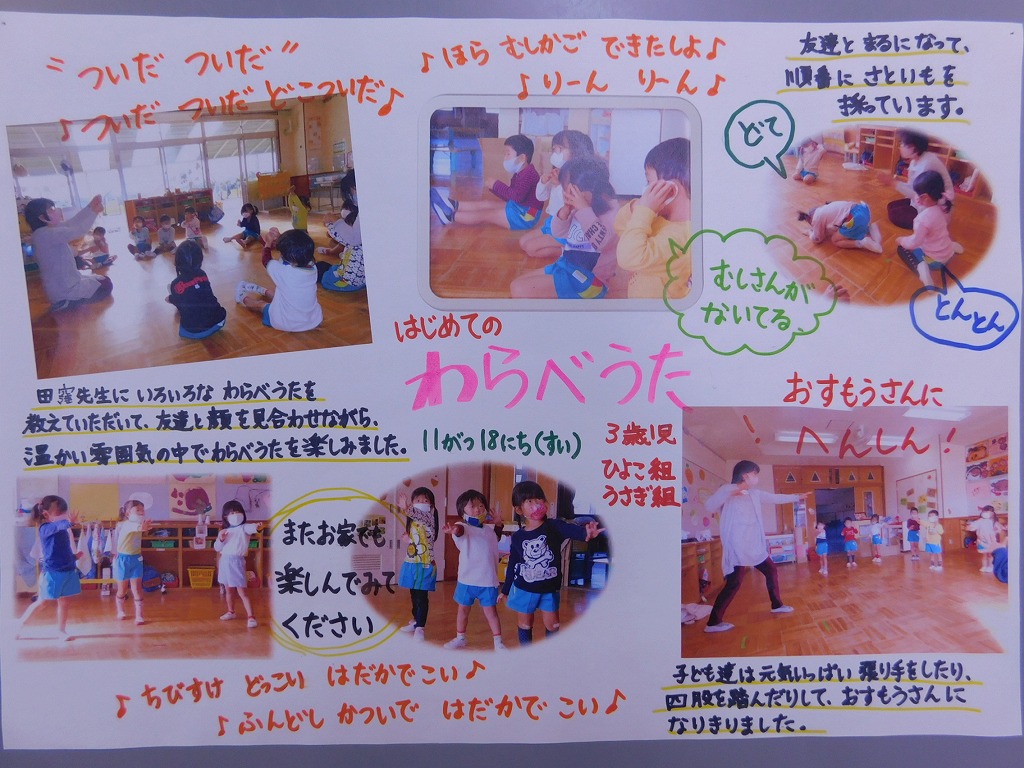 “ついだ ついだ”
♪ついだ ついだ どこついだ♪
♪ほら むしかご できたしよ♪
♪りーん りーん♪
友達と まるになって、
順番に さといもを
採っています。
どて
むしさんが
ないてる
とんとん
はじめての
わらべうた
11がつ18にち(すい)
3歳児
ひよこ組
うさぎ組
田窪先生に いろいろな わらべうたを
教えていただいて、友達と顔を見合わせながら、
温かい雰囲気の中でわらべうたを楽しみました。
おすもうさんに
へんしん!
またお家でも
楽しんでみて
ください
♪ちびすけ どっこい はだかでこい♪
♪ふんどし かついで はだかで こい♪
子ども達は元気いっぱい 張り手をしたり、
四股を踏んだりして、おすもうさんに
なりきりました。